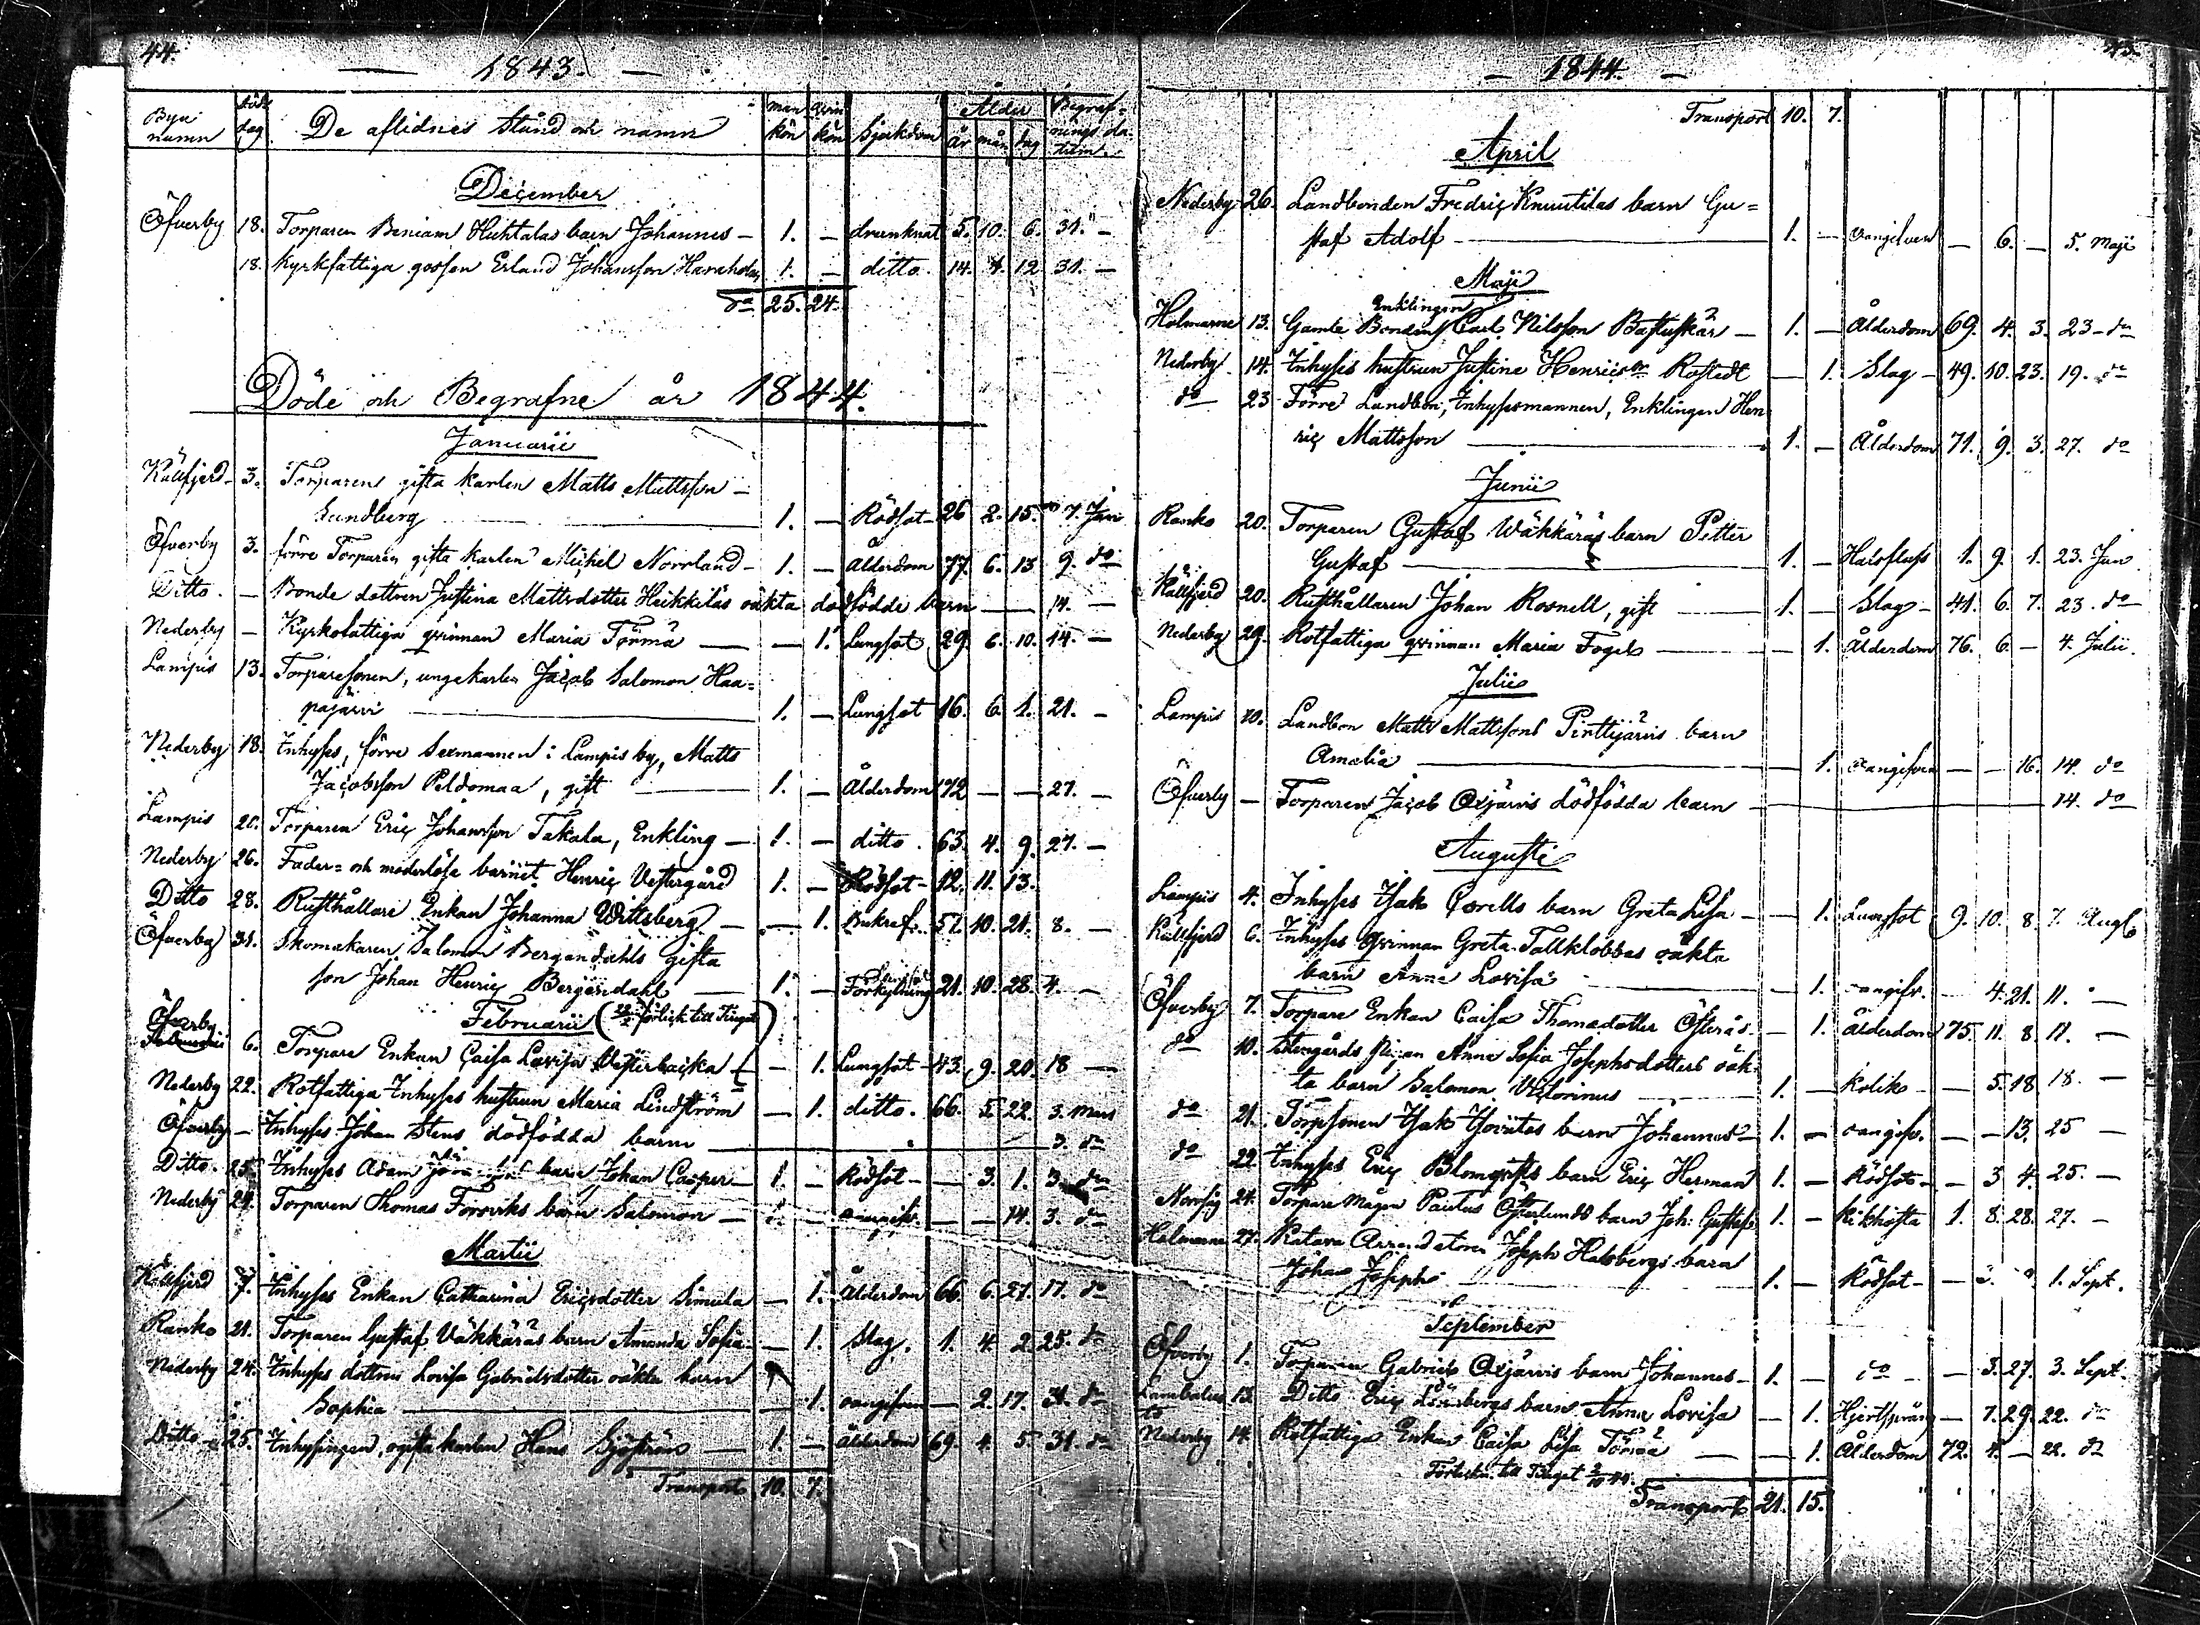 44.
1843.
Bya namn död dag De aflidnes Stånd och namn mankön qvinkön Sjukdom Ålder år mån dag Begrafningsdatum
December
Öfverby 18. Torparen Beniam Huhtalas barn Johannes 1. — drunknat 5. 10. 6. 31. —
18. Kyrkfattiga gossen Erland Johansson 1. — ditto. 14. 4. 12 31. —
Sa 25. 24.
Döde och Begrafne år 1844.
Januarii
Källfjerd 3. Torparen gifta karlen Matts Mattsson
Sundberg 1. — Rödsot 26 2. 15. 7. Jan
Öfverby 3. förre Torparen gifta karlen Michel Norrland 1. — Ålderdom 77. 6. 13 9. do
Ditto. — Bonde dottren Justina Mattsdotter Heikkiläs oäkta dödfödde barn — 14. —
Nederby — Kyrkofattiga qvinnan Maria Törmä — 1. Lungsot 29. 6. 10. 14. —
Lampis 13. Torparesonen, ungekarlen Jacob Salomon Haa=
pajärvi 1. — Lungsot 16. 6. 1. 21. —
Nederby 18. Inhyses, förre Sexmannen i Lampis by, Matts
Jacobsson Peldomaa, gift 1. — Ålderdom 72 — — 27. —
Lampis 20. Torparen Eric Johansson Takala, Enkling 1. — ditto. 63. 4. 9. 27. —
Nederby 26. Fader= och moderlösa barnet Henric Vestergård 1. — Rödsot 12. 11. 13.
Ditto 28. Rusthållare Enkan Johanna Wittsberg — 1. Bukref. 57. 10. 21. 8. —
Öfverby 31. Skomakaren Salomon Bergendahls gifta
son Johan Henric Bergendahl 1. — Förkylning 21. 10. 28. 4. —
Februarii
Öfverby 6. Torpare Enkan Caisa Lovisa — 1. Lungsot 43. 9. 20. 18 —
Nederby 22. Rotfattiga Inhyses hustrun Maria Lindström — 1. ditto. 66. 5. 22. 3. Mars
Öfverby — Inhyses Johan Stens dödfödda barn 3. do
Ditto. 25. Inhyses Adam barn Johan Casper 1. — Rödsot — 3. 1. 3. do
Nederby 29. Torparen Thomas barn Salomon 1. — oangifv. — — 14. 3. do
Martii
Källfjerd 7. Inhyses Enkan Catharina Ericsdotter Simula — 1. Ålderdom 66. 6. 27. 17. do
Ranko 21. Torparen Gustaf Väkkäräs barn Amanda Sofia — 1. Slag. 1. 4. 2. 25. do
Nederby 24. Inhyses dottren Lovisa Gabrielsdotter oäkta barn
Sophia — 1. oangifven — 2. 17. 31. do
Ditto 25. Inhysingen, ogifta karlen Hans Sjöström 1. — Ålderdom 69. 4. 5. 31. do
Transport 10. 7.
45.
1844.
Transport 10. 7.
April
Nederby 26. Landbonden Fredric Knuutilas barn Gu=
staf Adolf 1. — oangifven — 6. — 5. Maji
Maji
Enklingen
Holmarne 13. Gamle Bonden Carl Nilsson Bastuskär 1. — Ålderdom 69. 4. 3. 23. do
Nederby 14. Inhyses hustrun Justina Henricsdr Rostedt — 1. Slag 49. 10. 23. 19. do
do 23 Förre Landbon, Inhysesmannen, Enklingen Hen
ric Mattsson 1. — Ålderdom 71. 9. 3. 27. do
Junii
Ranko 20. Torparen Gustaf Wäkkäräs barn Petter
Gustaf 1. — Halsfluss 1. 9. 1. 23. Jun
Källfjerd 20. Rusthållaren Johan Rosnell, gift 1. — Slag 41. 6. 7. 23. do
Nederby 29. Rotfattiga qvinnan Maria Fogel — 1. Ålderdom 76. 6. — 4. Julii.
Julii
Lampis 10. Landbon Matts Mattssons Pirttijärvis barn
Amalia — 1. oangifven — — 16. 14. do
Öfverby — Torparen Jacob Oxjärvis dödfödda barn 14. do
Augusti
Lampis 4. Inhyses Isak Corells barn Greta Lisa — 1. Lungsot 9. 10. 8. 7. Aug.
Källfjerd 6. Inhyses qvinnan Greta Tallklobbas oäkta
barn Anna Lovisa — 1. oangifv. — 4. 21. 11. —
Öfverby 7. Torpare Enkan Caisa Thomasdotter Österås — 1. Ålderdom 75. 11. 8. 11. —
do 10. pigan Anna Sofia Josephsdotters oäk=
ta barn Salomon Victorinus 1. — Kolik — 5. 18 18. —
do 21. Torpsonen Isak barn Johannes 1. — oangifv. — — 13. 25 —
do 22. Inhyses Eric Blomqvists barn Eric Herman 1. — Rödsot — 3 4. 25. —
24. Torpare Mågen Paulus Österlunds barn Joh: Gustaf 1. — Kikhosta 1. 8. 28. 27. —
Holmarne 27. Arrendatoren Joseph Halsbergs barn
Johan Joseph 1. — Rödsot — 1. Sept.
September
Öfverby 1. Torparen Gabriel Oxjärvis barn Johannes 1. — do — 3. 27. 3. Sept.
13. Ditto Eric Lönnbergs barn Anna Lovisa — 1. Hjertsprång — 7. 29. 22. do
Nederby 14. Rotfattiga Enkan Caisa Lisa Törmä — 1. Ålderdom 72. 4. — 22. do
Transport 21. 15.